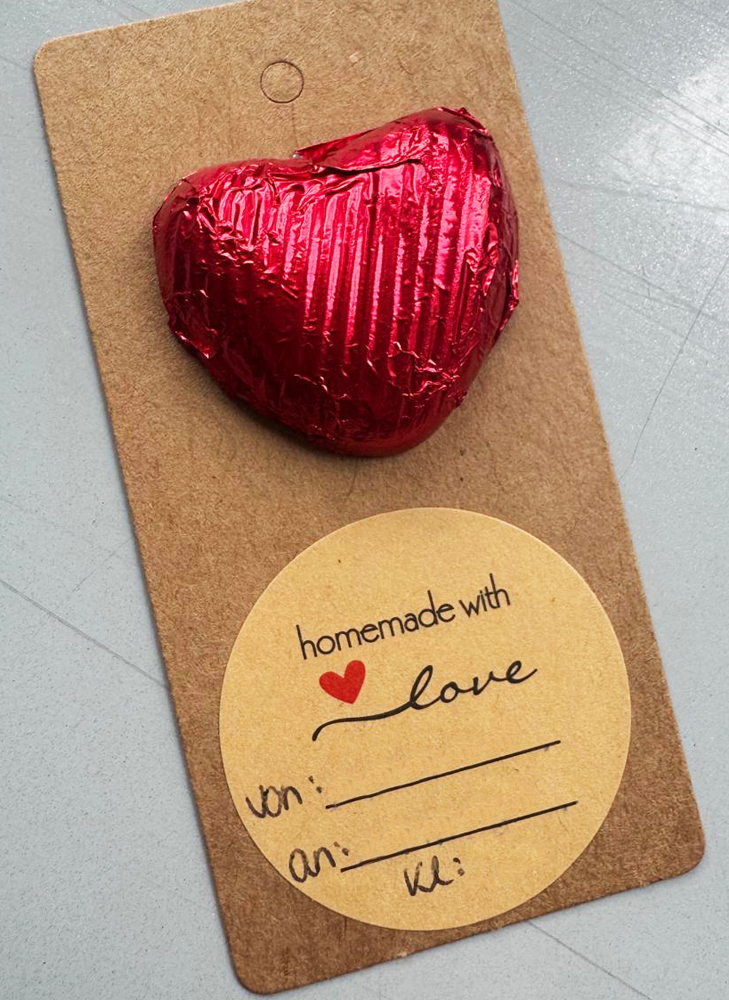 homemade with
love
von:
an:
Kl: